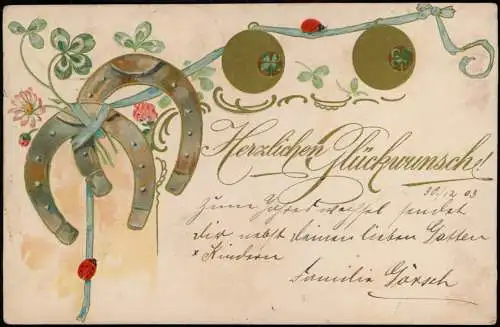 Herzlichen Glückwunsch!
30/12 03
zum Jahreswechsel sendet
dir nebst deinen lieben Gatten
& Kindern
Familie Görsch